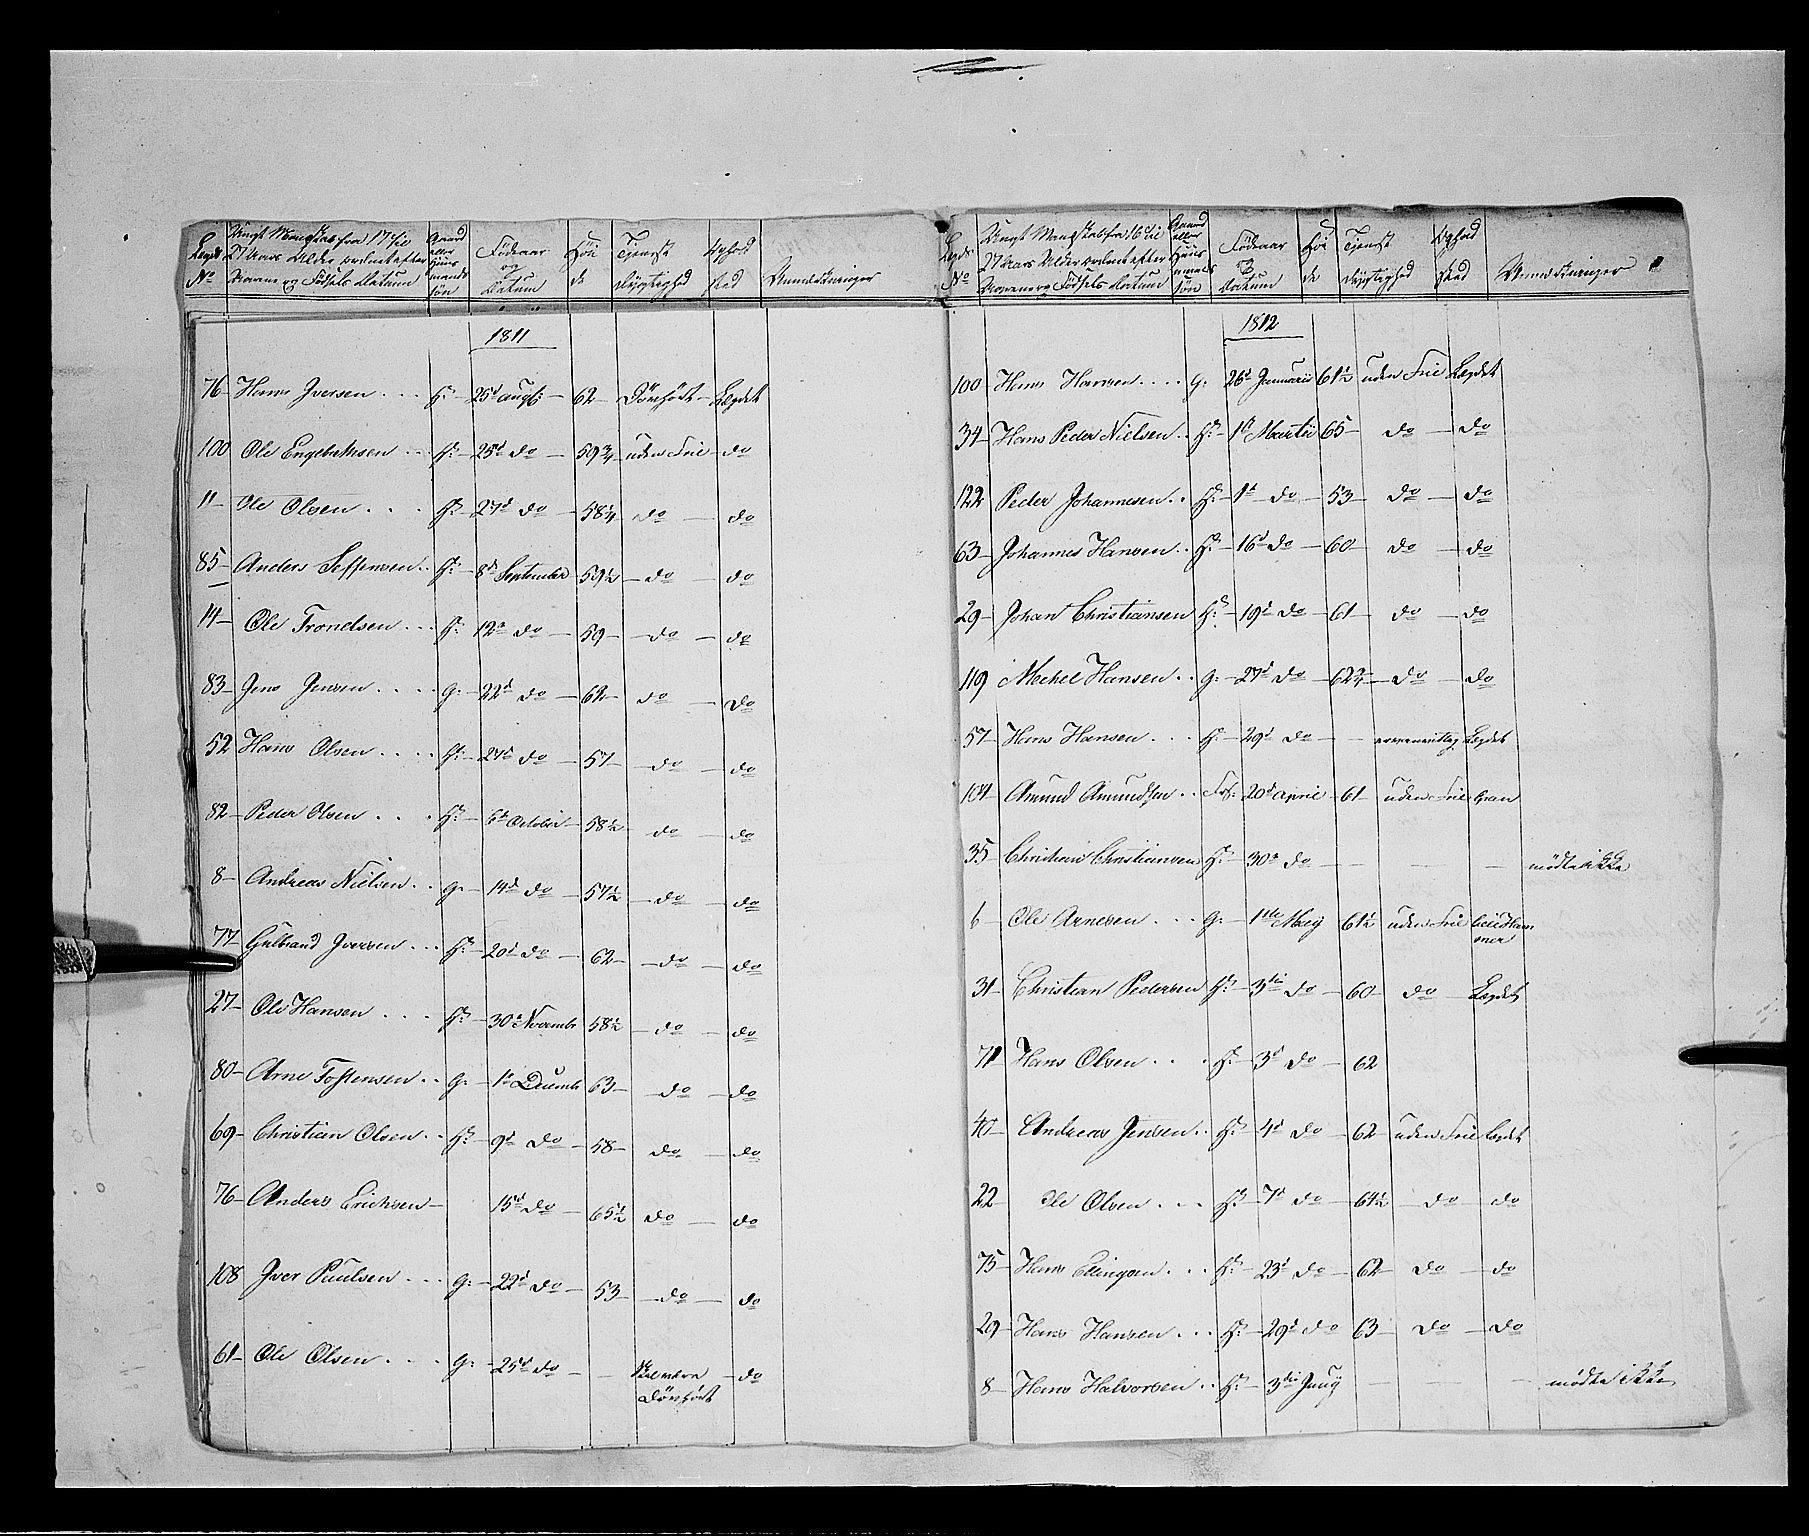 Legds No | Ungt Mandskab fra 17 til 27 Aars Alder ordnet efter Navne og Fødsels Datum | Gaard eller Huusmands søn | Fødeaar og Datum | Høi de | Tjenst dygtighed | Ophold sted | Anmærkninger
1811
76 Hans Iversen . . . H: 25d augt: 62 Døvhørt Legdet
100 Ole Engebrethsen . . H: 25d do 59 3/4 uden Feil do
11 Ole Olsen . . . . H: 27d do 58 1/4 do do
85 Anders Steffensen . . H: 8d September 59 1/2 do do
14 Ole Trondsen . . . H: 12d do 59 do do
83 Jens Jensen . . . . G: 22d do 62 do do
52 Hans Olsen . . . . H: 27d do 57 do do
82 Peder Olsen . . . H: 6d October 58 1/2 do do
8 Andreas Nielsen . . G: 14d do 57 1/2 do do
77 Gulbrand Iversen . . . H: 20d do 62 do do
27 Ole Hansen . . . H: 30d Novembr 58 1/2 do do
80 Arne Tostensen . . G: 1d Decembr 63 do do
69 Christian Olsen . . H: 9d do 58 do do
76 Anders Erichsen 15d do 65 1/2 do do
108 Iver Paulsen . . . G: 22d do 53 do do
61 Ole Olsen . . . . G: 25d do do
Døvhørt
Legds No | Ungt Mandskab fra 16 til 27 Aars Alder ordnet efter Navne og Fødsels Datum | Gaard eller Huusmands søn | Fødeaar og Datum | Høi de | Tjenst dygtighed | Ophold sted | Anmærkninger
1812
100 Hans Hansen . . . . G: 26d Januarii 61 1/2 uden Feil Legdet
34 Hans Peder Nielsen . . H: 1d Martii 65 do do
122 Peder Johannesen . . H: 1d do 53 do do
63 Johannes Hansen . . H: 16d do 60 do do
29 Johan Christiansen H: 19d do 61 do do
119 Mechel Hansen . . G: 27d do 62 3/4 do do
57 Hans Hansen . . . H: 29d do Legdet
104 Amund Amundsen . . 20d april 61 uden Feil Gran
35 Christian Christiansen H: 30d do mødte ikke
6 Ole Arnesen . . . G: 1ste Maij 61 1/2 uden Feil
31 Christian Pedersen H: 3die do 60 do Legdet
71 Hans Olsen . . . . H: 3d do 62
40 Andreas Jensen . . H: 4d do 62 uden Feil Legdet
22 Ole Olsen . . . H: 7d do 61 1/2 do do
75 Hans Ellingsen . . . H: 23d do 62 do do
29 Hans Hansen . . . H: 29d do 63 do do
8 Hans Halvorsen . . H: 3die Junij mødte ikke